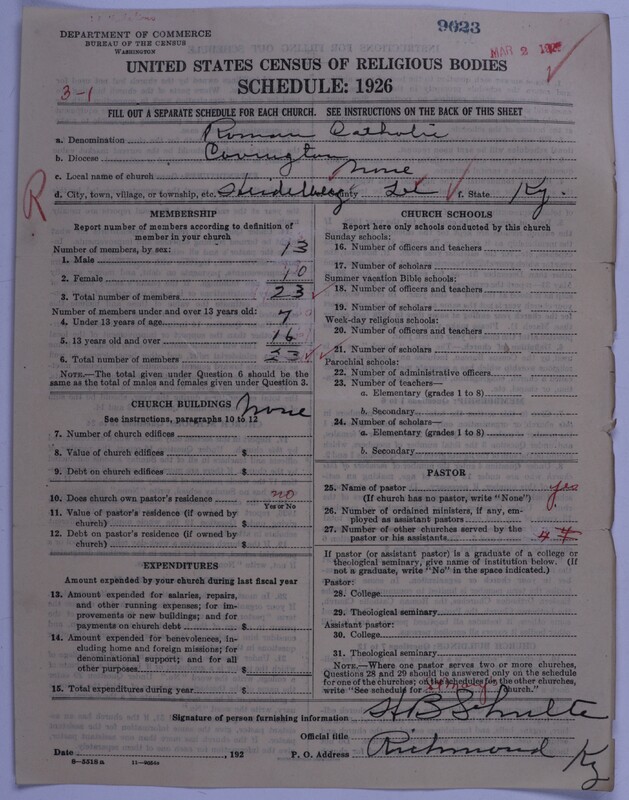 DEPARTMENT OF COMMERCE
BUREAU OF THE CENSUS
WASHINGTON
9023
MAR 2 192
UNITED STATES CENSUS OF RELIGIOUS BODIES
SCHEDULE: 1926
3-1
FILL OUT A SEPARATE SCHEDULE FOR EACH CHURCH. SEE INSTRUCTIONS ON THE BACK OF THIS SHEET
a. Denomination Roman Catholic
b. Diocese Covington
c. Local name of church None
R
d. City, town, village, or township, etc. Heidelberg County Lee f. State Ky.
MEMBERSHIP
Report number of members according to definition of
member in your church
Number of members, by sex:
1. Male 13
2. Female 10
3. Total number of members 23
Number of members under and over 13 years old:
4. Under 13 years of age 7
5. 13 years old and over 16
6. Total number of members 23
NOTE.—The total given under Question 6 should be
same as the total of males and females given under Question 3.
CHURCH BUILDINGS None
See instructions, paragraphs 10 to 12
7. Number of church edifices
8. Value of church edifices $
9. Debt on church edifices $
10. Does church own pastor's residence no
Yes or No
11. Value of pastor's residence (if owned by
church) $
12. Debt on pastor's residence (if owned by
church) $
EXPENDITURES
Amount expended by your church during last fiscal year
13. Amount expended for salaries, repairs,
and other running expenses; for im-
provements or new buildings; and for
payments on church debt $
14. Amount expended for benevolences, in-
cluding home and foreign missions; for
denominational support; and for all
other purposes $
15. Total expenditures during year $
CHURCH SCHOOLS
Report here only schools conducted by this church
Sunday schools:
16. Number of officers and teachers
17. Number of scholars
Summer vacation Bible schools:
18. Number of officers and teachers
19. Number of scholars
Week-day religious schools:
20. Number of officers and teachers
21. Number of scholars
Parochial schools:
22. Number of administrative officers
23. Number of teachers—
a. Elementary (grades 1 to 8)
b. Secondary
24. Number of scholars—
a. Elementary (grades 1 to 8)
b. Secondary
PASTOR
25. Name of pastor yes
(If church has no pastor, write "None")
26. Number of ordained ministers, if any, em-
ployed as assistant pastors
27. Number of other churches served by the
pastor or his assistants 4
If pastor (or assistant pastor) is a graduate of a college or
theological seminary, give name of institution below. (If
not a graduate, write "No" in the space indicated.)
Pastor:
28. College
29. Theological seminary
Assistant pastor:
30. College
31. Theological seminary
NOTE.—Where one pastor serves two or more churches,
Questions 28 and 29 should be answered only on the schedule
for one of the churches; on the schedules for the other churches,
write "See schedule for church."
Signature of person furnishing information H B Schulte
Official title
Date , 192
P. O. Address Richmond Ky
8-5518 a